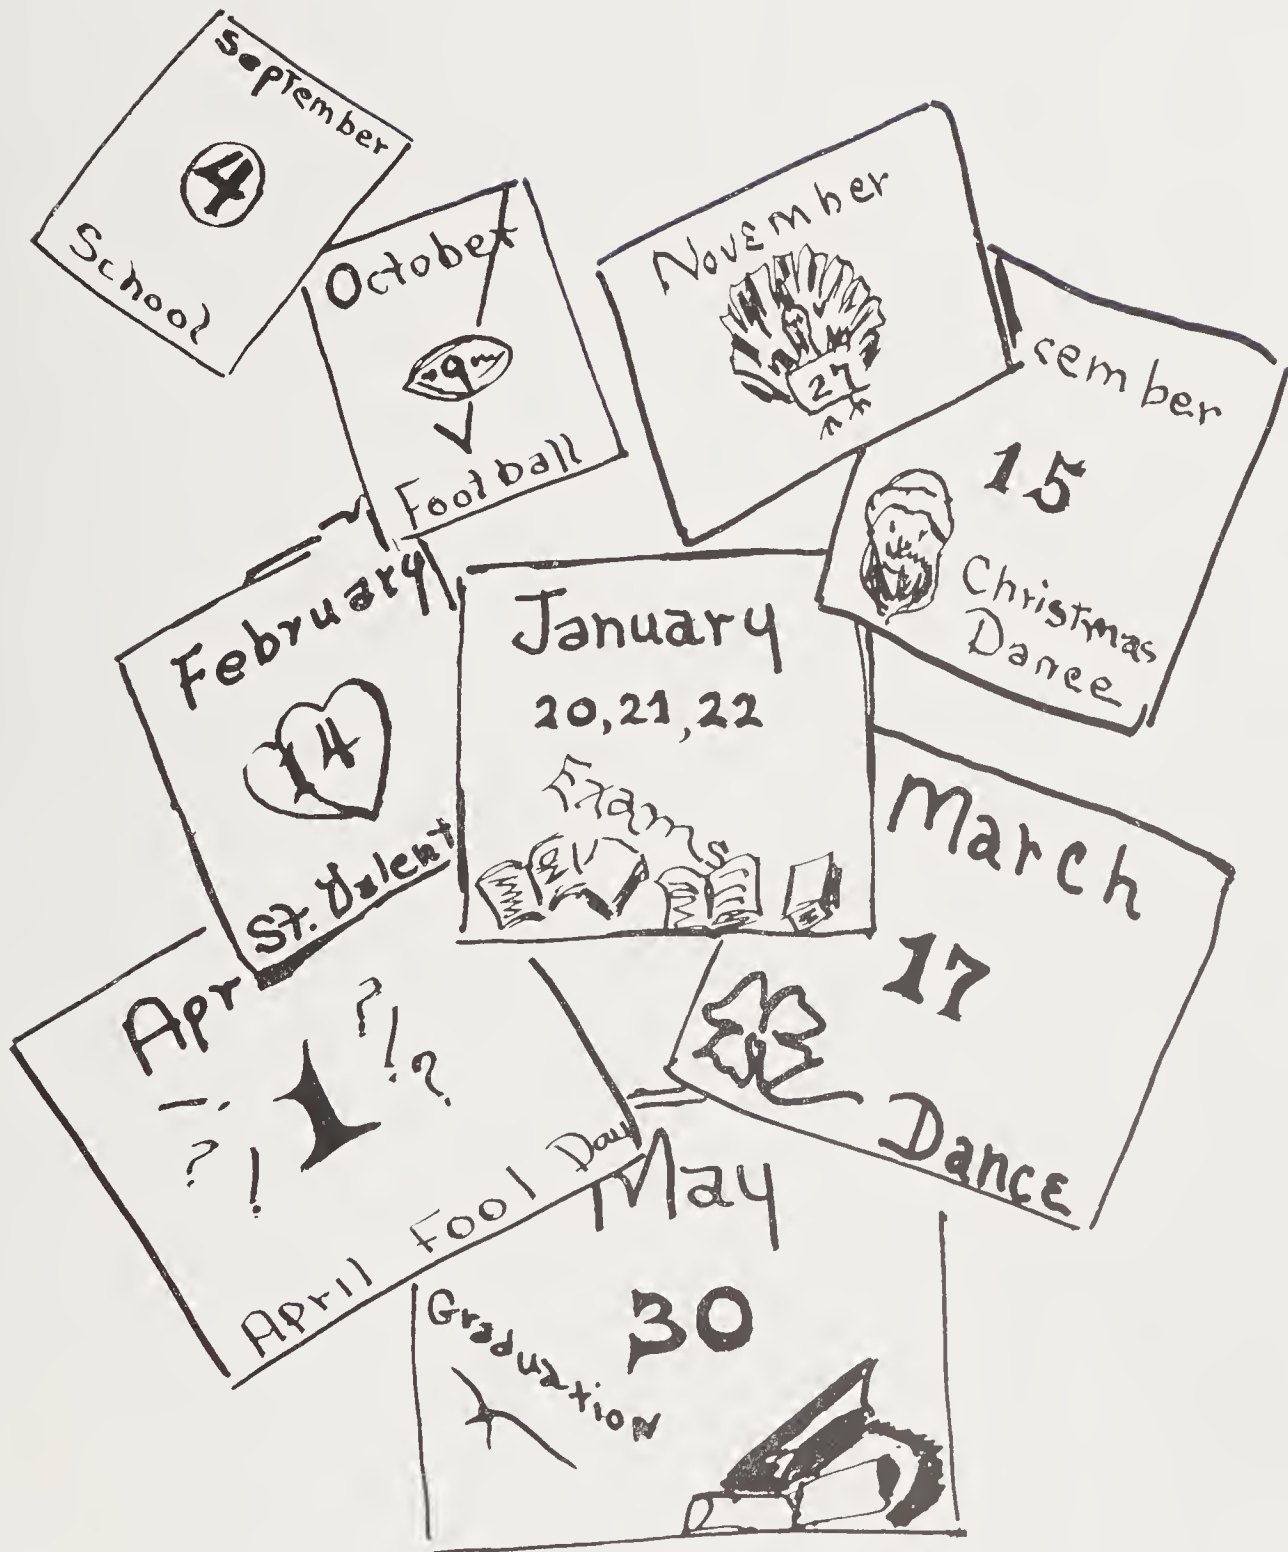 September
4
School
October
9
Football
November
27
cember
15
Christmas
Dance
February
14
St. Valent
January
20, 21, 22
Exams
March
17
Dance
Apr
1
? ! ?
? !
April Fool Day
May
30
Graduation